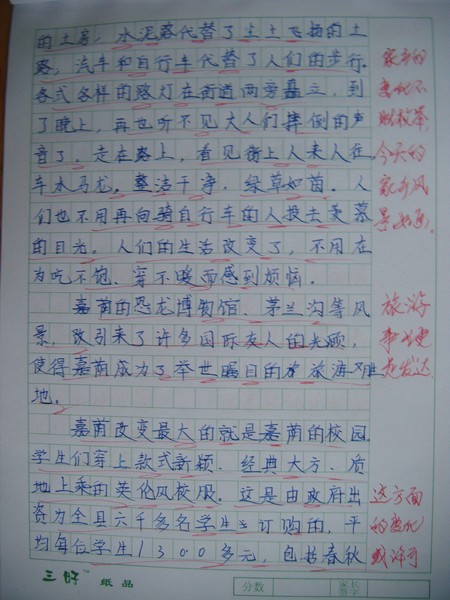 的土房，水泥路代替了尘土飞扬的土
路，汽车和自行车代替了人们的步行。
各式各样的路灯在街道两旁矗立，到
了晚上，再也听不见大人们摔倒的声
音了。走在路上，看见街上人来人往。
车水马龙。整洁干净，绿草如茵。人
们也不用再向骑自行车的人投去羡慕
的目光。人们的生活改变了，不用在
为吃不饱、穿不暖而感到烦恼。
嘉荫的恐龙博物馆、茅兰沟等风
景，改引来了许多国际友人的光顾，
使得嘉荫成为了举世瞩目的旅游
地。
嘉荫改变最大的就是嘉荫的校园。
学生们穿上款式新颖、经典大方、质
地上乘的英伦风校服。这是由政府出
资为全县六千多名学生订购的，平
均每位学生1300多元，包括春秋
家乡的
变化不
胜枚举，
今天的
家乡风
景如画。
旅游
事业更
是发达
这方面
的变化
三好 纸品
分数
家长
签字